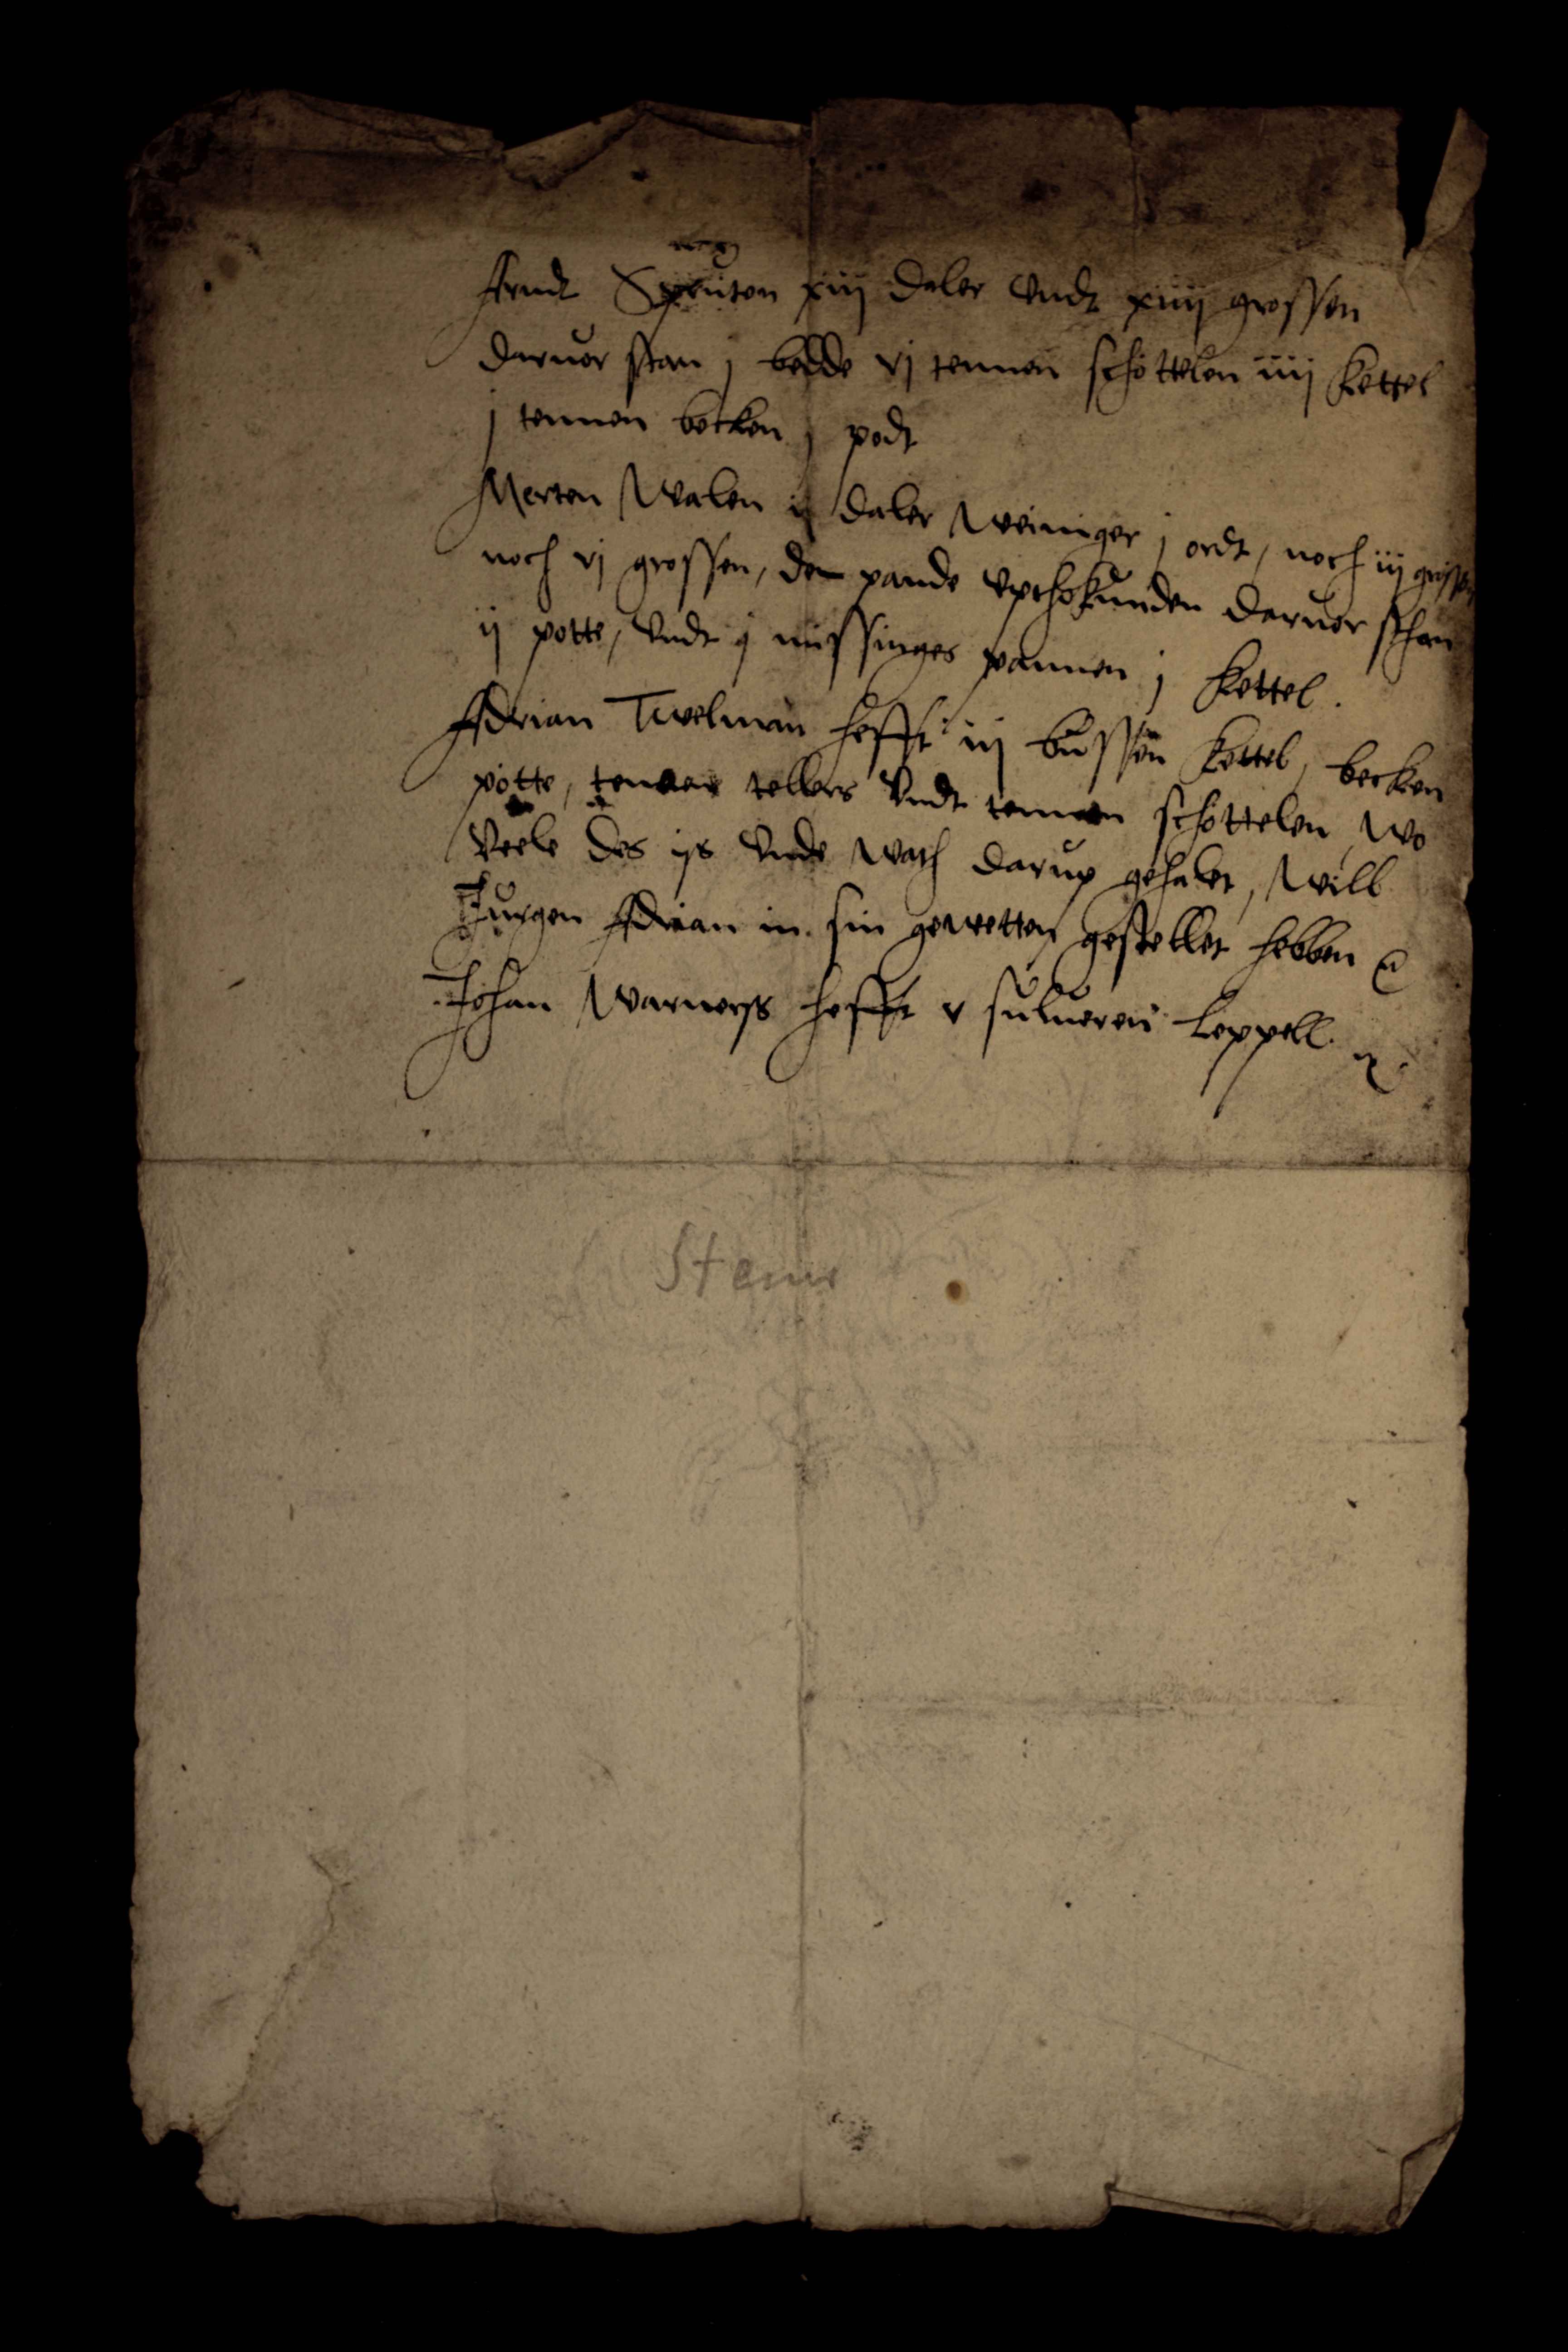 Arndt Spruten xiij daler vndt xiiij grossen
daruor stan j bedde vj tennen schottelen iiij kettel
j tennen becken j podt
Merten Walen ij daler weiniger j ordt, noch iij grossen
noch vj grossen, de pande vpthokunden daruor sthan
ij potte, vndt j missinges pannen j kettel.
Adrian Twelman hefft iij bussen kettel, becken
potte, tennen tellers vndt tennen schottelen, wo
veele des ijs vnde wath darup gehalet, will
Jurgen Adrian in sin gewetten gestellet hebben
Johan Warnerss hefft v sulueren leppell.